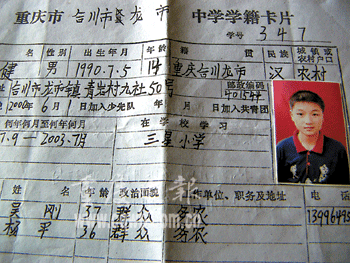 重庆市 合川市 龙市 中学学籍卡片
学号 347
名 性别 出生年月 年龄 籍贯 民族 城镇或农村户口
健 男 1990.7.5 14 重庆合川市 汉 农村
址 合川市龙市镇 村九社50号 邮政编码 401544
2000年6月 日加入少先队 年 月 日加入共青团
何年何月至何年何月 在何学校学习
7.9 — 2003.7月 三星小学
姓名 年龄 政治面貌 工作单位、职务及地址 电话
吴刚 37 群众 务农 1399649
杨平 36 群众 务农